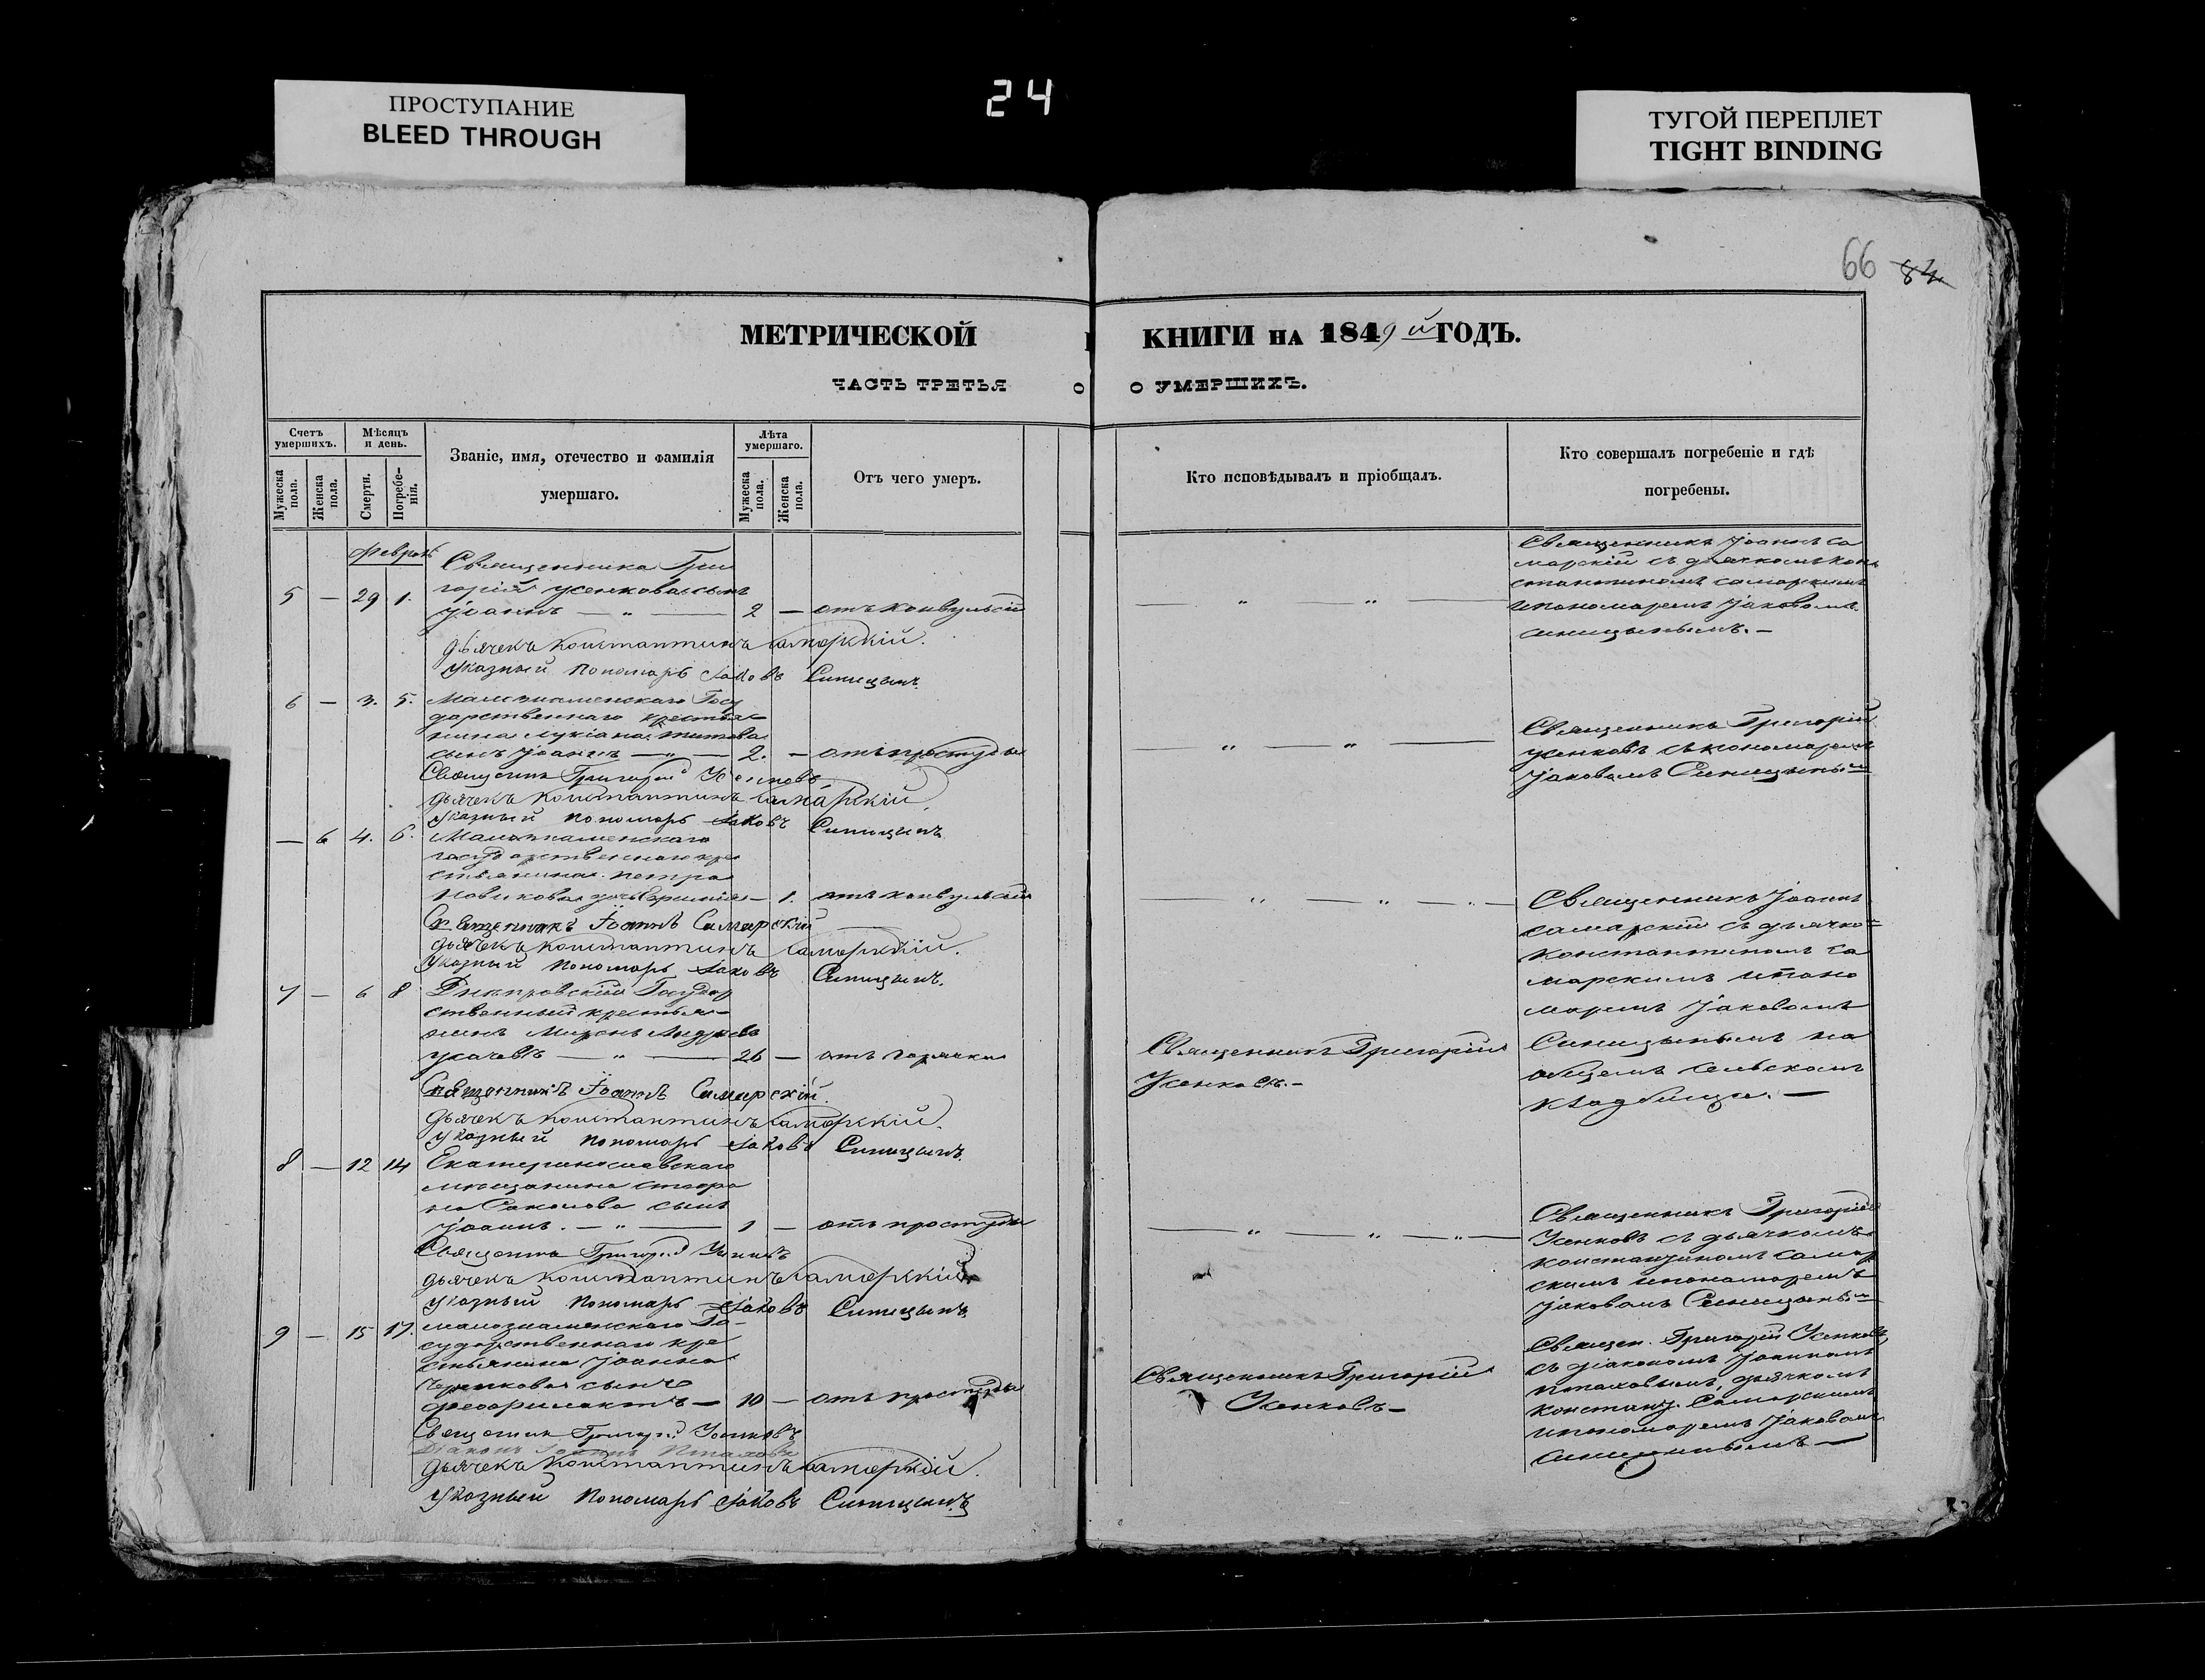 ПРОСТУПАНИЕ
BLEED THROUGH
24
ТУГОЙ ПЕРЕПЛЕТ
TIGHT BINDING
66 84
МЕТРИЧЕСКОЙ
КНИГИ НА 1849 й ГОДЪ.
ЧАСТЬ ТРЕТЬЯ о
О УМЕРШИХЪ.
Счетъ умершихъ.
Мужеска пола.
Женска пола.
Мѣсяцъ и день.
Смерти.
Погребенія.
Званіе, имя, отечество и фамилія
умершаго.
Лѣта умершаго.
Мужеска пола.
Женска пола.
Отъ чего умеръ.
Кто исповѣдывалъ и пріобщалъ.
Кто совершалъ погребеніе и гдѣ
погребены.
Священника Гри
горій Усенкова сынъ
5 — 29 1. Іоаннъ — „ — 2 — отъ конвульсій
Священникъ Іоаннъ Са
марскій съ дьячкомъ Кон
стантиномъ Самарскимъ
и пономаремъ Іаковомъ
Синицынымъ. —
Дьячекъ Константинъ Самарскій.
Указный Пономарь Іаковъ Синицынъ.
6 — 3. 5. Малознаменскаго Госу
дарственнаго крестья-
нина Лукіана Титова
сынъ Іоаннъ — „ — 2. — отъ простуды
Священникъ Григорій
Усенковъ съ пономаремъ
Іаковомъ Синицыны
Священникъ Григорій Усенковъ
Дьячекъ Константинъ Самарскій.
Указный Пономарь Іаковъ Синицынъ
— 6 4. 6. Малознаменскаго
государственнаго кре
стьянина Петра
Новикова дочь — 1. отъ конвульсій
Священникъ Іоаннъ Самарскій
Дьячекъ Константинъ Самарскій.
Указный Пономарь Іаковъ Синицынъ.
Священникъ Іоаннъ
Самарскій съ дьячко
Константиномъ Са
марскимъ и поно
маремъ Іаковомъ
Синицынымъ на
общемъ сельскомъ
кладбищѣ. —
7 — 6 8 Днипровскій Государ
ственный крестья-
нинъ Миронъ Андреевъ
— „ — 26 — отъ горячки
Священникъ Григорій
Усенковъ. —
Священникъ Іоаннъ Самарскій.
Дьячекъ Константинъ Самарскій.
Указный Пономарь Іаковъ Синицынъ.
8 — 12 14 Екатеринославскаго
мѣщанина
сынъ
Іоаннъ. — „ — 1 — отъ простуды
Священникъ Григорій
Усенковъ съ дьячкомъ
Константиномъ Самар
скимъ и пономаремъ
Іаковомъ Синицыны
Священникъ Григорій Усенковъ
Дьячекъ Константинъ Самарскій
Указный Пономарь Іаковъ Синицынъ
9 — 15 17. Малознаменскаго Го-
сударственнаго кре
стьянина Іоанна
сынъ
Феофилактъ — 10 — отъ простуды
Священникъ Григорій
Усенковъ —
Священ. Григорій Усенковъ
съ діакономъ Іоанномъ
дьячкомъ
Констант. Самарскимъ
и пономаремъ Іаковомъ
Синицынымъ —
Священникъ Григорій Усенковъ
Діаконъ Іоаннъ
Дьячекъ Константинъ Самарскій.
Указный Пономарь Іаковъ Синицынъ